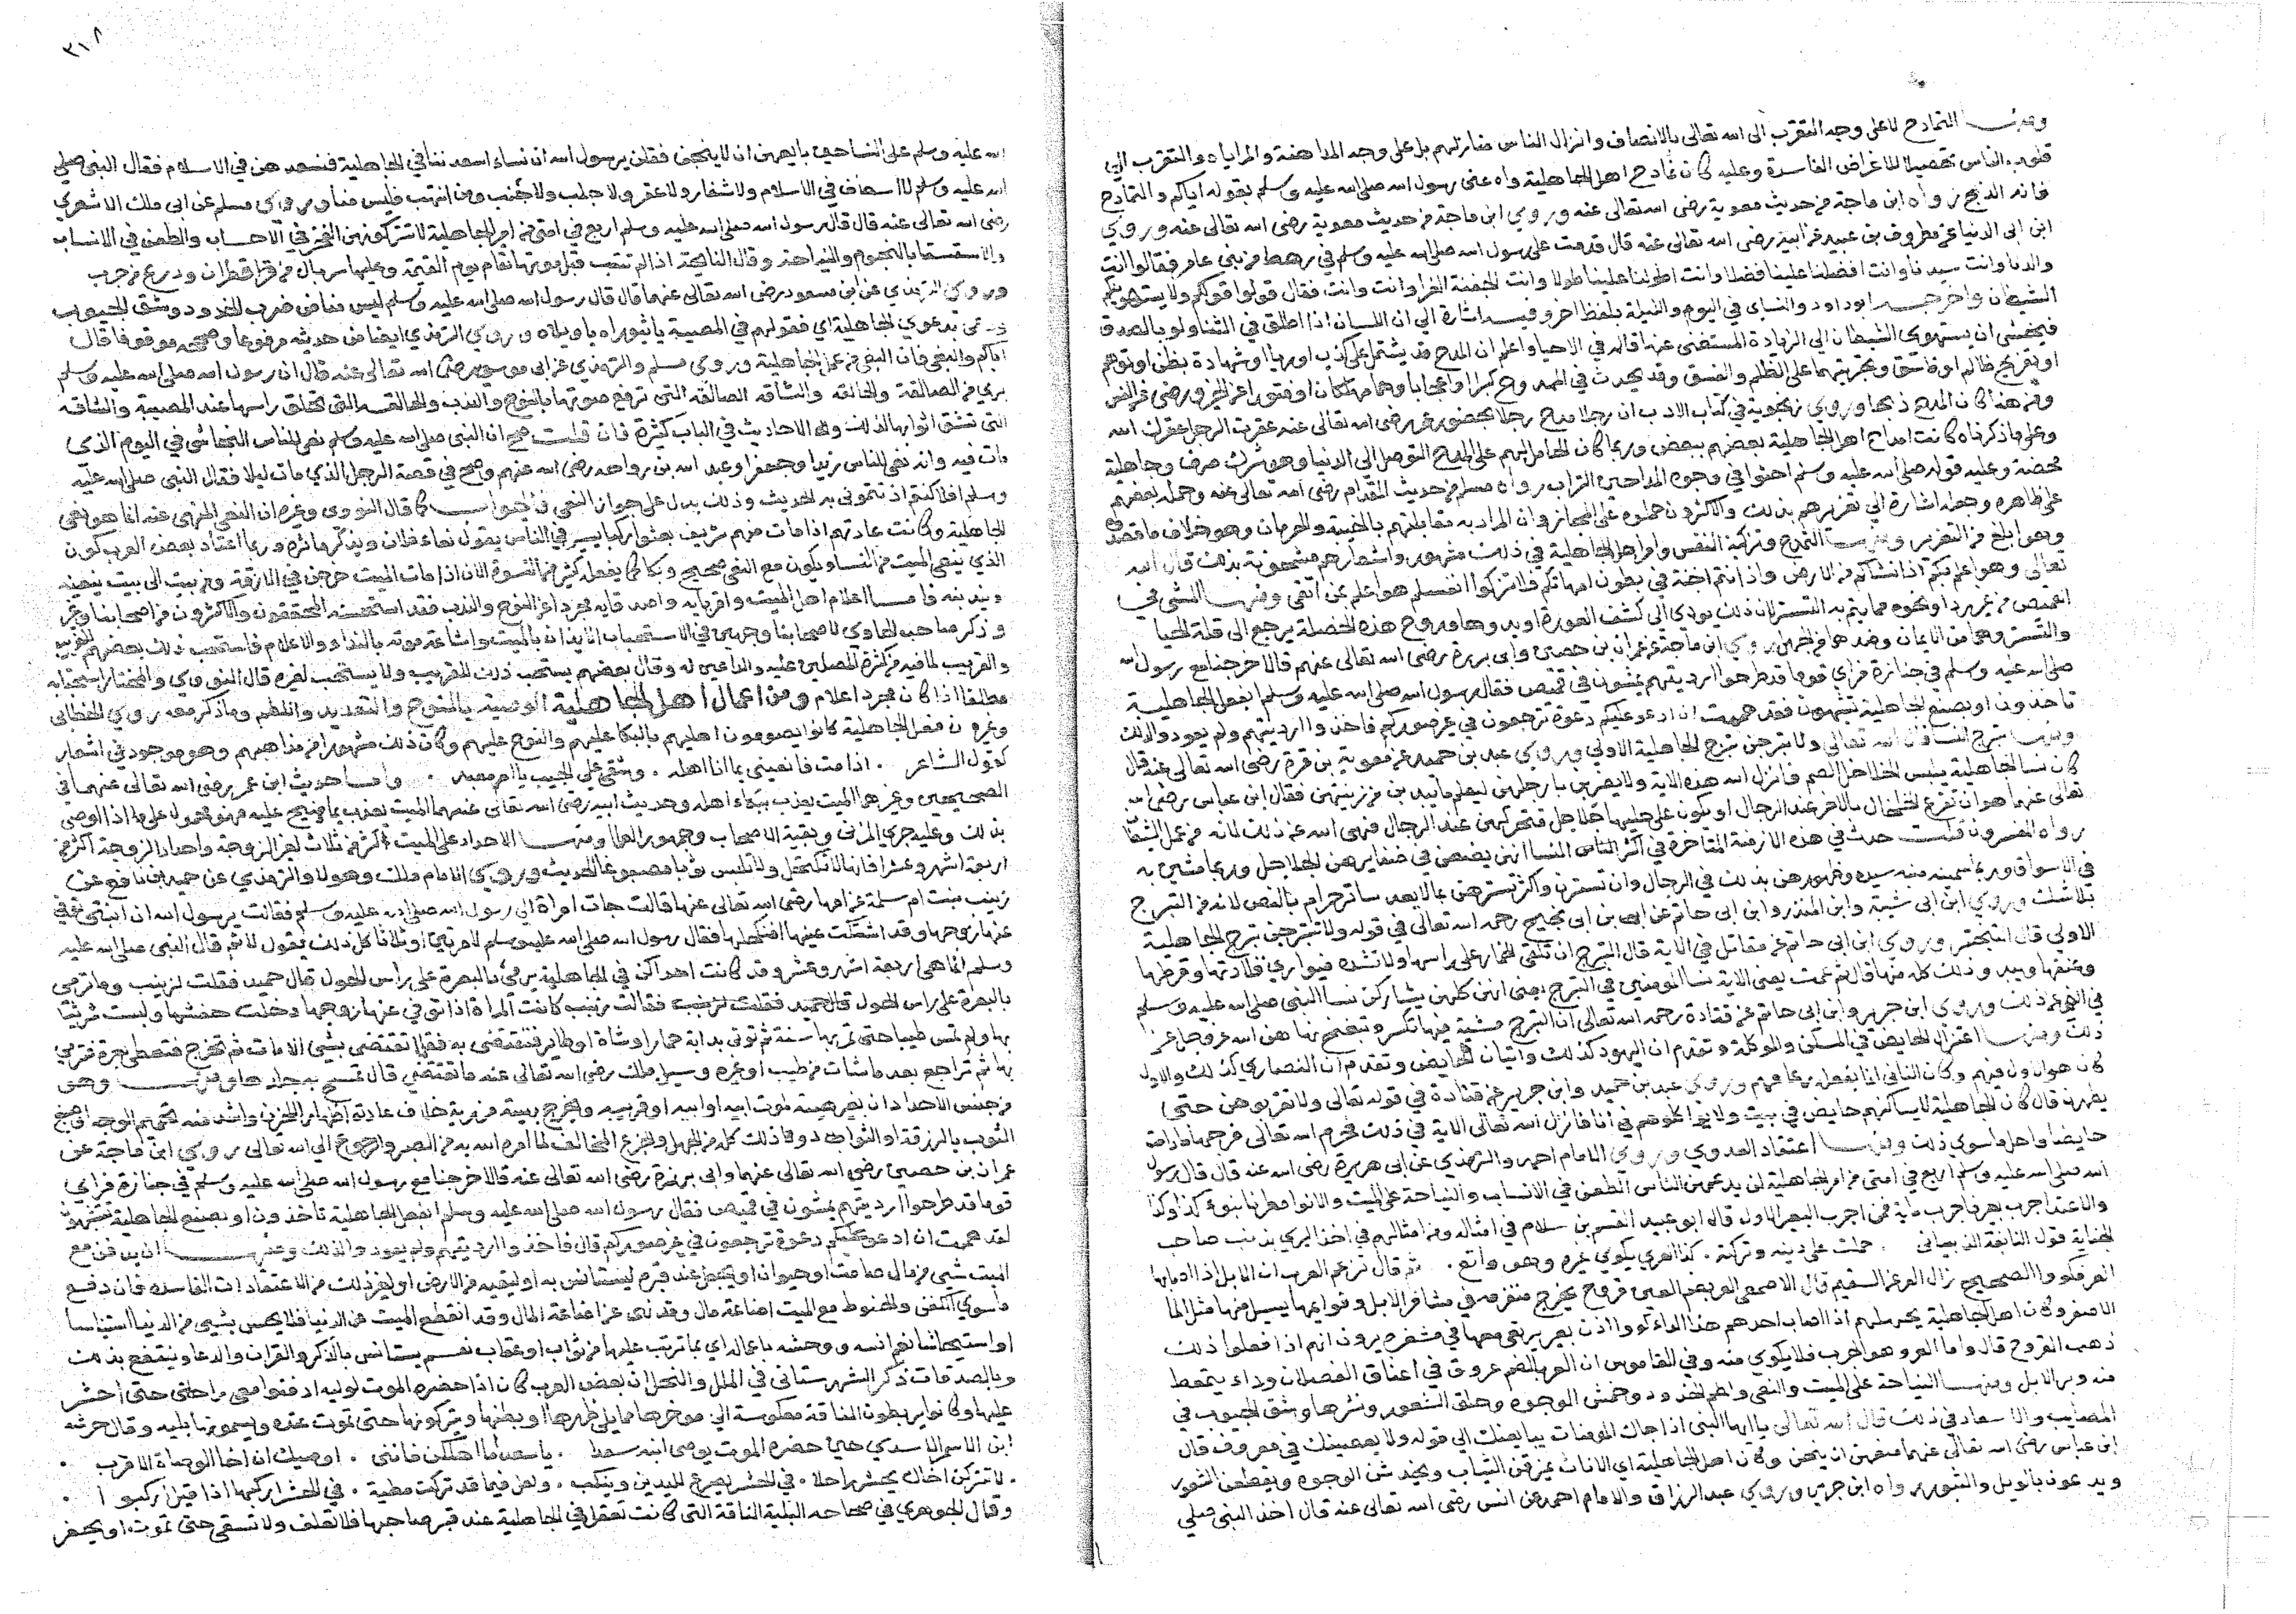 ومنها التمادح لا على وجه التقرب الى الله تعالى بالانصاف وانزال الناس منازلهم بل على وجه المداهنة والمراياه والتقرب الى
قلوب الناس تحصيلا للاغراض الفاسدة وعليه كان تمادح اهل الجاهلية وا نهى عنه رسول الله صلى الله عليه وسلم بقوله اياكم والتمادح
فانه الذبح رواه ابن ماجة من حديث معوية رضى الله تعالى عنه وروي ابن ماجة من حديث معوية رضى الله تعالى عنه وروي
ابن ابى الدنيا عن مطرف بن عبيد عن ابيه رضى الله تعالى عنه قال قدمت على رسول الله صلى الله عليه وسلم في رهط من بني عامر فقالوا انت
والدنا وانت سيدنا وانت افضلنا علينا فضلا وانت اطولنا علينا طولا وانت الجفنة الغرا وانت وانت فقال قولوا قولكم ولا يستهوينكم
الشيطان واخرجه ابو داود والنساى في اليوم والليلة بلفظ اخر وفيه اشارة الى ان اللسان اذا اطلق في الثنا ولو بالصدق
فيخشى ان يستهوى الشيطان الى الزيادة المستغنى عنها قاله في الاحيا واعلم ان المدح قد يشتمل على كذب او ريا او شهادة بظن او توهم
او تفريح ظالم او فاسق وتجرئتهما على الظلم والفسق وقد يحدث في الممدوح كبرا واعجابا وهما مهلكان او فتورا عن الخير ورضى عن النفس
ومن هنا كان المدح ذبحا وروي زنجوية في كتاب الادب ان رجلا مدح رجلا بحضور عمر رضى الله تعالى عنه عقرت الرجل عقرك الله
وعلى ما ذكرناه كانت امداح اهل الجاهلية بعضهم ببعض وربما كان الحامل لهم على المدح التوصل الى الدنيا وهو شرك صرف وجاهلية
محضة وعليه قوله صلى الله عليه وسلم احثوا في وجوه المداحين التراب رواه مسلم من حديث المقدام رضى الله تعالى عنه وحمله بعضهم
على ظاهره وجعله اشارة الى تعزيرهم بذلك والاكثرون حملوه على المجاز وان المراد به مقابلتهم بالخيبة والحرمان وهو خلاف ما قصدوه
وهو ابلغ من التعزير ومنها التمدح وتزكية النفس وامر اهل الجاهلية في ذلك مشهور واشعارهم مشحونة بذلك قال الله
تعالى وهو اعلم بكم اذ انشاكم من الارض واذ انتم اجنة في بطون امهاتكم فلا تزكوا انفسكم هو اعلم بمن اتقى ومنها المشى في
القميص من غير ردا ونحوه مما يتم به التستر لان ذلك يودي الى كشف العورة او بدوها ومدح هذه الخصلة يرجع الى قلة الحيا
والتستر وهما من الايمان وضدهما من الجهل روي ابن ماجة عن عمران بن حصين وابى برزة رضى الله تعالى عنهم قالا خرجنا مع رسول الله
صلى الله عليه وسلم في جنازة فراى قوما قد طرحوا ارديتهم يمشون في قمص فقال رسول الله صلى الله عليه وسلم ابفعل الجاهلية
تاخذون او بصنع الجاهلية تشبهون لقد هممت ان ادعو عليكم دعوة ترجعون في غير صوركم فاخذوا ارديتهم ولم يعودوا لذلك
ومنها تبرج النسا قال الله تعالى ولا تبرجن تبرج الجاهلية الاولى وروي عبد بن حميد عن معوية بن قرة رضى الله تعالى عنه قال
كان نسا الجاهلية يلبس الخلاخل الصم فانزل الله هذه الاية ولا يضربن بارجلهن ليعلم ما يبدين من زينتهن فقال ابن عباس رضى الله
تعالى عنهما هو ان تقرع الخلخال بالاخر عند الرجال او تكون على رجليها خلاخل فتحركهن عند الرجال فنهى الله عن ذلك لانه من عمل الشيطان
رواه المفسرون قلت حدث في هذه الازمنة المتاخرة في اكثر الناس النسا انهن يضعن في ضفايرهن الجلاجل وربما مشين به
في الاسواق وظهورهن بذلك في الرجال وان تسترن واكثر تسترهن بما لا يعد ساتر حرام بالنص لانه من التبرج
بلا شك وروي ابن ابى شيبة وابن المنذر وابن ابى حاتم عن ابن ابى نجيح رحمه الله تعالى في قوله ولا تبرجن تبرج الجاهلية
الاولى قال التبختر وروي ابن ابى حاتم عن مقاتل في الاية قال التبرج ان تلقى الخمار على راسها ولا تشده فيواري قلادتها وقرطها
وعنقها ويبدو ذلك كله منها قال ثم عمت يعنى الاية نسا المومنين في التبرج يعنى انهن كلهن يشاركن نسا النبى صلى الله عليه وسلم
في النهي عن ذلك وروي ابن جرير وابن ابى حاتم عن قتادة رحمه الله تعالى ان التبرج مشية فيها تكسر وتغنج نهاهن الله عز وجل عن
ذلك ومنها اعتزال الحايض في المسكن والموكلة وتقدم ان اليهود كذلك واتيان الحوايض وتقدم ان النصاري كذلك والاول
كان هو الاول فيهم وكان الثانى انما يفعله رعاعهم وروي عبد بن حميد وابن جرير عن قتادة في قوله تعالى ولا تقربوهن حتى
يطهرن قال كان الجاهلية لا يساكنهم حايض في بيت ولا يواكلوهم في انا فانزل الله تعالى الاية في ذلك فحرم الله تعالى فرجها ما دامت
حايضا واحل ما سوي ذلك ومنها اعتقاد العدوي وروي الامام احمد والترمذي عن ابى هريرة رضى الله عنه قال قال رسول
الله صلى الله عليه وسلم اربع في امتى من امر الجاهلية لن يدعهن الناس الطعن في الانساب والنياحة على الميت والانوا مطرنا بنوء كذا وكذا
والاعدا جرب بعير فاجرب ماية فمن اجرب البعير الاول قال ابو عبيد القسم بن سلام في امثاله ومن امثالهم في اخذ البري بذنب صاحب
الجناية قول النابغة الذبيانى . حملت على ذنبه وتركته . كذا العر يكوي غيره وهو راتع . ثم قال تزعم العرب ان الابل اذا اصابها
العر فكووا الصحيح زال العر عن السقيم قال الاصمعى العر بضم العين قروح تخرج متفرقة في مشافر الابل وقوايمها يسيل منها مثل الما
الاصفر وكان اهل الجاهلية بجهلهم اذا اصاب احدهم هذا الداء كووا اذن بعير يرتعى معها في مشفره يرون انهم اذا فعلوا ذلك
ذهب القروح قال واما العر وهو الجرب فلا يكوي منه وفي القاموس ان العر بالضم عروق في اعناق الفصلان وداء يتمعط
منه وبر الابل ومنها النياحة على الميت والنعى ولطم الخدود وخمش الوجوه وحلق الشعور ونشرها وشق الجيوب في
المصايب والاسعاد في ذلك قال الله تعالى يا ايها النبى اذا جاك المومنات يبايعنك الى قوله ولا يعصينك في معروف قال
ابن عباس رضى الله تعالى عنهما منعهن ان ينحن وكان اهل الجاهلية اي الاناث يمزقن الثياب ويخدشن الوجوه ويقطعن الشعور
ويدعون بالويل والثبور رواه ابن جرير وروي عبد الرزاق والامام احمد عن انس رضى الله تعالى عنه قال اخذ النبى صلى
٣١٨
الله عليه وسلم على النسا حين بايعهن ان لا ينحن فقلن يرسول الله ان نساء اسعدننا في الجاهلية فنسعدهن في الاسلام فقال النبى صلى
الله عليه وسلم لا اسعاد في الاسلام ولا شغار ولا عقر ولا جلب ولا جنب ومن انتهب فليس منا وروي مسلم عن ابى ملك الاشعري
رضى الله تعالى عنه قال قال رسول الله صلى الله عليه وسلم اربع في امتى من امر الجاهلية لا يتركونهن الفخر في الاحساب والطعن في الانساب
والاستسقا بالنجوم والنياحة وقال النايحة اذا لم تتب قبل موتها تقام يوم القيمة وعليها سربال من قطران ودرع من جرب
وروي الترمذي عن ابن مسعود رضى الله تعالى عنهما قال قال رسول الله صلى الله عليه وسلم ليس منا من ضرب الخدود وشق الجيوب
ودعى بدعوي الجاهلية اي فقولهم في المصيبة يا ثبوراه يا ويلاه وروي الترمذي ايضا من حديثه مرفوعا وصححه موقوفا قال
اياكم والنعى فان النعى من عمل الجاهلية وروي مسلم والترمذي عن ابى موسى رضى الله تعالى عنه قال ان رسول الله صلى الله عليه وسلم
بري من الصالقة والحالقة والشاقه الصالقه التى ترفع صوتها بالنوح والندب والحالقه التى تحلق راسها عند المصيبة والشاقه
التى تشق اثوابها لذلك والاحاديث في الباب كثيرة فان قلت صح ان النبى صلى الله عليه وسلم نعى للناس النجاشى في اليوم الذي
مات فيه وانه نعى للناس زيدا وجعفرا وعبد الله بن رواحه رضى الله عنهم وصح في قصة الرجل الذي مات ليلا فقال النبى صلى الله عليه
وسلم افلا كنتم اذنتمونى به الحديث وذلك يدل على جواز النعى فالجواب كما قال النووي وغيره ان النعى المنهى عنه انما هو نعى
الجاهلية وكانت عادتهم اذا مات منهم شريف بعثوا راكبا يسير في الناس يقول نعاء فلان ويذكر ماثره وربما اعتاد بعض العرب كون
الذي ينعى الميت من النسا ويكون مع النعى ضجيج وبكا كما يفعل كثير من النسوة الان اذا مات الميت خرجن في الازقة ومن بيت الى بيت ينعينه
ويندبنه فاما اعلام اهل الميت واقربايه واصدقايه مجردا عن النوح والندب فقد استحسنه المحققون والاكثرون من اصحابنا وغيرهم
وذكر صاحب الحاوي لاصحابنا وجهين في الاستحباب الايذان بالميت واشاعة موته بالنداء والاعلام فاستحب ذلك بعضهم للغريب
والقريب لما فيه من كثرة المصلين عليه والداعين له وقال بعضهم يستحب ذلك للغريب ولا يستحب لغيره قال النووي والمختار استحبابه
مطلقا اذا كان مجرد اعلام ومن اعمال اهل الجاهلية الوصية بالنوح والتعديد واللطم وما ذكر معه روي الخطابى
وغيره ان فعل الجاهلية كانوا يوصون اهليهم بالبكا عليهم والنوح عليهم وكان ذلك مشهورا من مذاهبهم وهو موجود في اشعارهم
كقول الشاعر . اذا مت فانعينى بما انا اهله . وشقى على الجيب يا ام معبد . واما حديث ابن عمر رضى الله تعالى عنهما في
الصحيحين وغيرهما الميت يعذب ببكاء اهله وحديث ابيه رضى الله تعالى عنهما الميت يعذب بما نيح عليه فهو محمول على ما اذا اوصى
بذلك وعليه جري المزنى وبقية الاصحاب وجمهور العلما ومنها الاحداد على الميت اكثر من ثلاث لغير الزوجة واحداد الزوجة اكثر من
اربعة اشهر وعشرا فانها لا تكتحل ولا تلبس ثوبا مصبوغا الحديث وروي الامام ملك وهو لا والترمذي عن حميد بن نافع عن
زينب بنت ام سلمة عن امها رضى الله تعالى عنها قالت جات امراة الى رسول الله صلى الله عليه وسلم فقالت يرسول الله ان ابنتى توفي
عنها زوجها وقد اشتكت عينها افنكحلها فقال رسول الله صلى الله عليه وسلم لا مرتين او ثلاثا كل ذلك يقول لا ثم قال النبى صلى الله عليه
وسلم انما هى اربعة اشهر وعشر وقد كانت احداكن في الجاهلية ترمي بالبعرة على راس الحول قال حميد فقلت لزينب وما ترمى
بالبعرة على راس الحول فقالت زينب كانت المراة اذا توفي عنها زوجها دخلت حفشا ولبست شر ثيابها
بها ولم تمس طيبا حتى تمر بها سنة ثم توتى بدابة حمار او شاة او طاير فتفتض به فقلما تفتض بشى الا مات ثم تخرج فتعطى بعرة فترمي
بها ثم تراجع بعد ما شات من طيب او غيره وسيل ملك رضى الله تعالى عنه ما تفتض قال تمسح به جلدها ومنها وهو
من جنس الاحداد ان يغير هيئته لموت ابيه او ابيه او قريبه ويخرج بهيئة مزرية خلاف عادته اظهارا للحزن واشد منه تحميم الوجه او صبغ
الثوب بالزرقة او السواد وذلك كله من الجهل والجزع المخالف لما امر الله به من الصبر والرجوع الى الله تعالى روي ابن ماجة عن
عمران بن حصين رضى الله تعالى عنهما وابى برزة رضى الله تعالى عنه قالا خرجنا مع رسول الله صلى الله عليه وسلم في جنازة فراي
قوما قد طرحوا ارديتهم يمشون في قمص فقال رسول الله صلى الله عليه وسلم ابفعل الجاهلية تاخذون او بصنع الجاهلية تشبهون
لقد هممت ان ادعو عليكم دعوة ترجعون في غير صوركم قال فاخذوا ارديتهم ولم يعودوا لذلك ومنها ان يدفن مع
الميت شى من مال صامت او حيوان او يحفظ عند قبره ليستانس به او ليقيه من الارض او لغير ذلك من الاعتقادات الفاسده فان دفع
ما سوي الكفن والحنوط مع الميت اضاعة مال وقد نهى عن اضاعة المال وقد انقطع الميت من الدنيا فلا يحس بشى من الدنيا استيناسا
او استيحاشا نعم انسه ووحشه باعماله اي بما ترتب عليها من ثواب او عقاب نعم يستانس بالذكر والقران والدعا وينتفع بذلك
وبالصدقات ذكر الشهرستانى في الملل والنحل ان بعض العرب كان اذا حضره الموت لوليه ادفنوا معى راحلتى حتى احشر
عليها وكانوا يربطون الناقة معكوسة الى موخرها مما يلى ظهرها او بطنها ويتركونها حتى تموت عنده ويسمونها بليه وقال حريثه
ابن الاسيم الاسدي حين حضره الموت يوصى ابنه سعدا . يا سعد اما اهلكن فاننى . اوصيك ان اخا الوصاة الاقرب .
. لا تتركن اخاك يحشر راحلا . في الحشر يصرع لليدين وينكب . ولعل فيما قد تركت مطية . في الحشر اركبها اذا قيل اركبوا .
وقال الجوهري في صحاحه البلية الناقة التى كانت تعقل في الجاهلية عند قبر صاحبها فلا تعلف ولا تسقى حتى تموت او يحفر